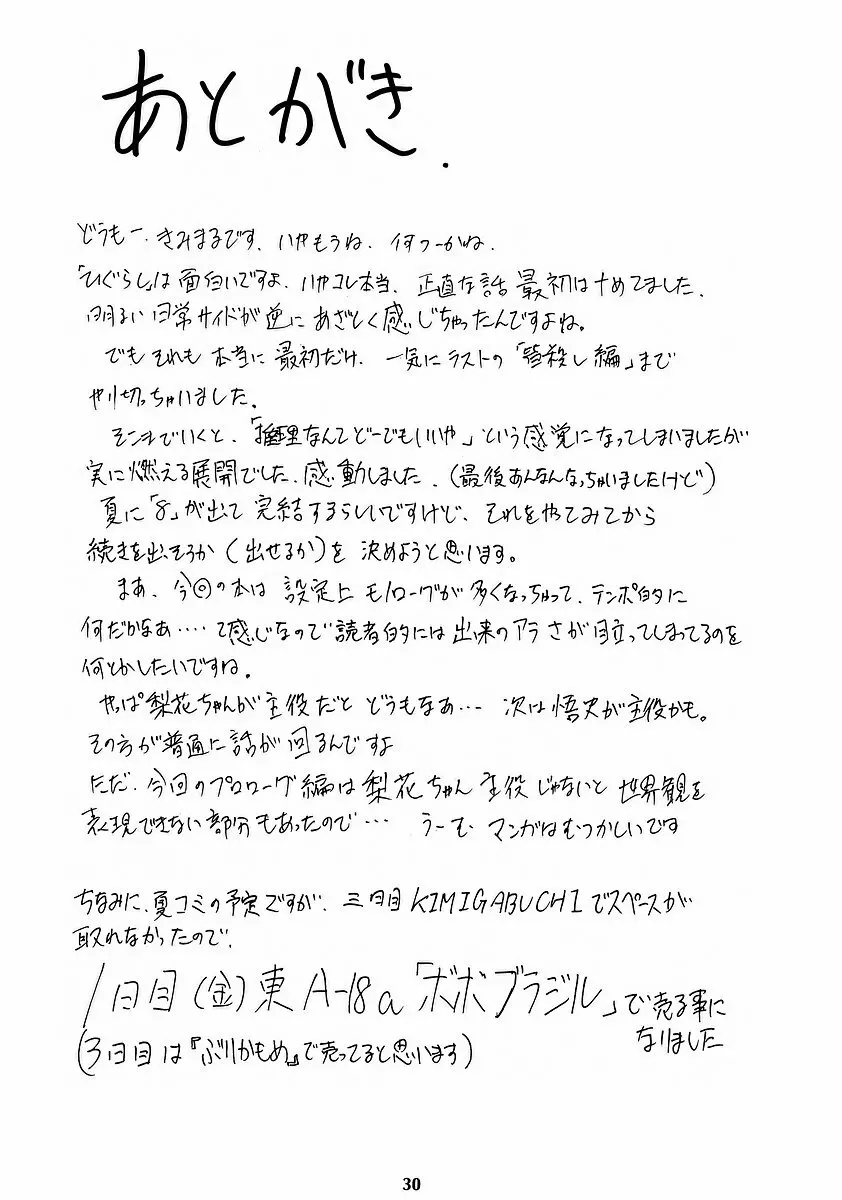 あとがき.
どうもー、きみまるです、いやもうね、何つーかね、
「ひぐらし」は面白いですよ、いやコレ本当、正直な話最初はナめてました、
明るい日常サイドが逆にあざとく感じちゃったんですよね。
でもそれも本当に最初だけ、一気にラストの「皆殺し編」まで
やり切っちゃいました.
そこまでいくと、「推理なんてどーでもいいや」という感覚になってしまいましたが
実に燃える展開でした、感動しました、(最後あんなんなっちゃいましたけど)
夏に「8」が出て完結するらしいですけど、それをやってみてから
続きを出そうか(出せるか)を決めようと思います。
まあ、今回の本は設定上モノローグが多くなっちゃって、テンポ的に
何だかなあ‥‥て感じなので読者的には出来のアラさが目立ってしまってるのを
何とかしたいですね。
やっぱ梨花ちゃんが主役だとどうもなあ…次は悟史が主役かも。
その方が普通に話が回るんですよ
ただ、今回のプロローグ編は梨花ちゃん主役じゃないと世界観を
表現できない部分もあったので…うーむマンガはむつかしいです
ちなみに、夏コミの予定ですが、三日目KIMIGABUCHIでスペースが
取れなかったので、
1日目(金)東A-18a「ボボブラジル」で売る事に
なりました
(3日目は『ぶりかもめ』で売ってると思います)
30